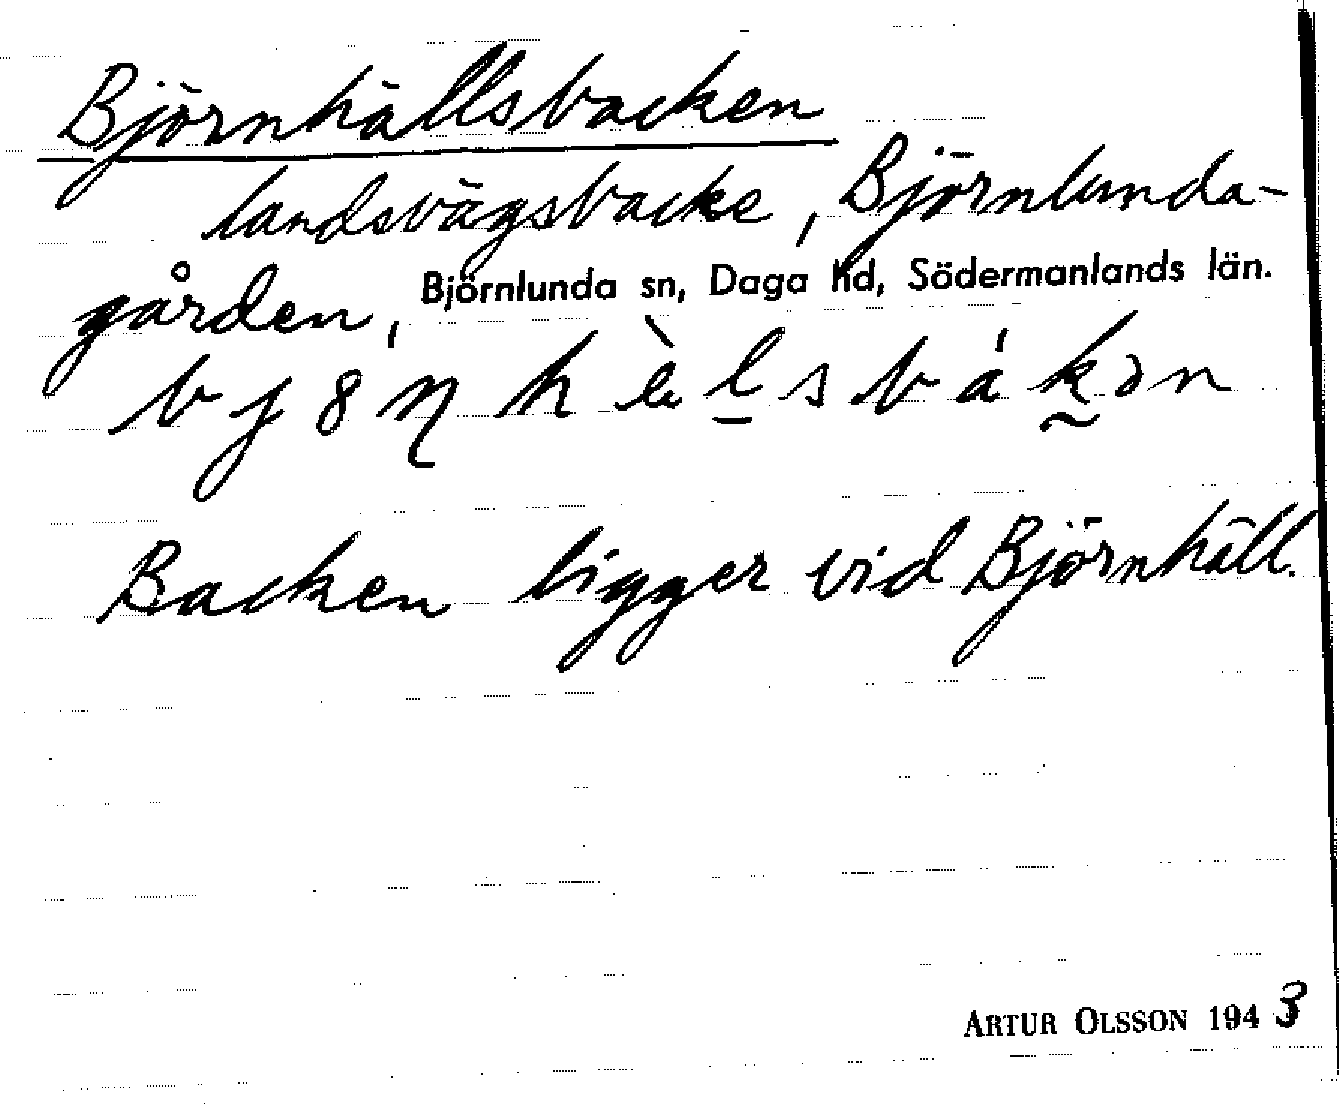 Björnhällsbacken
landsvägsbacke, Björnlunda-
gården, Björnlunda sn, Daga hd, Södermanlands län.
Backen ligger vid Björnhäll.
ARTUR OLSSON 1943